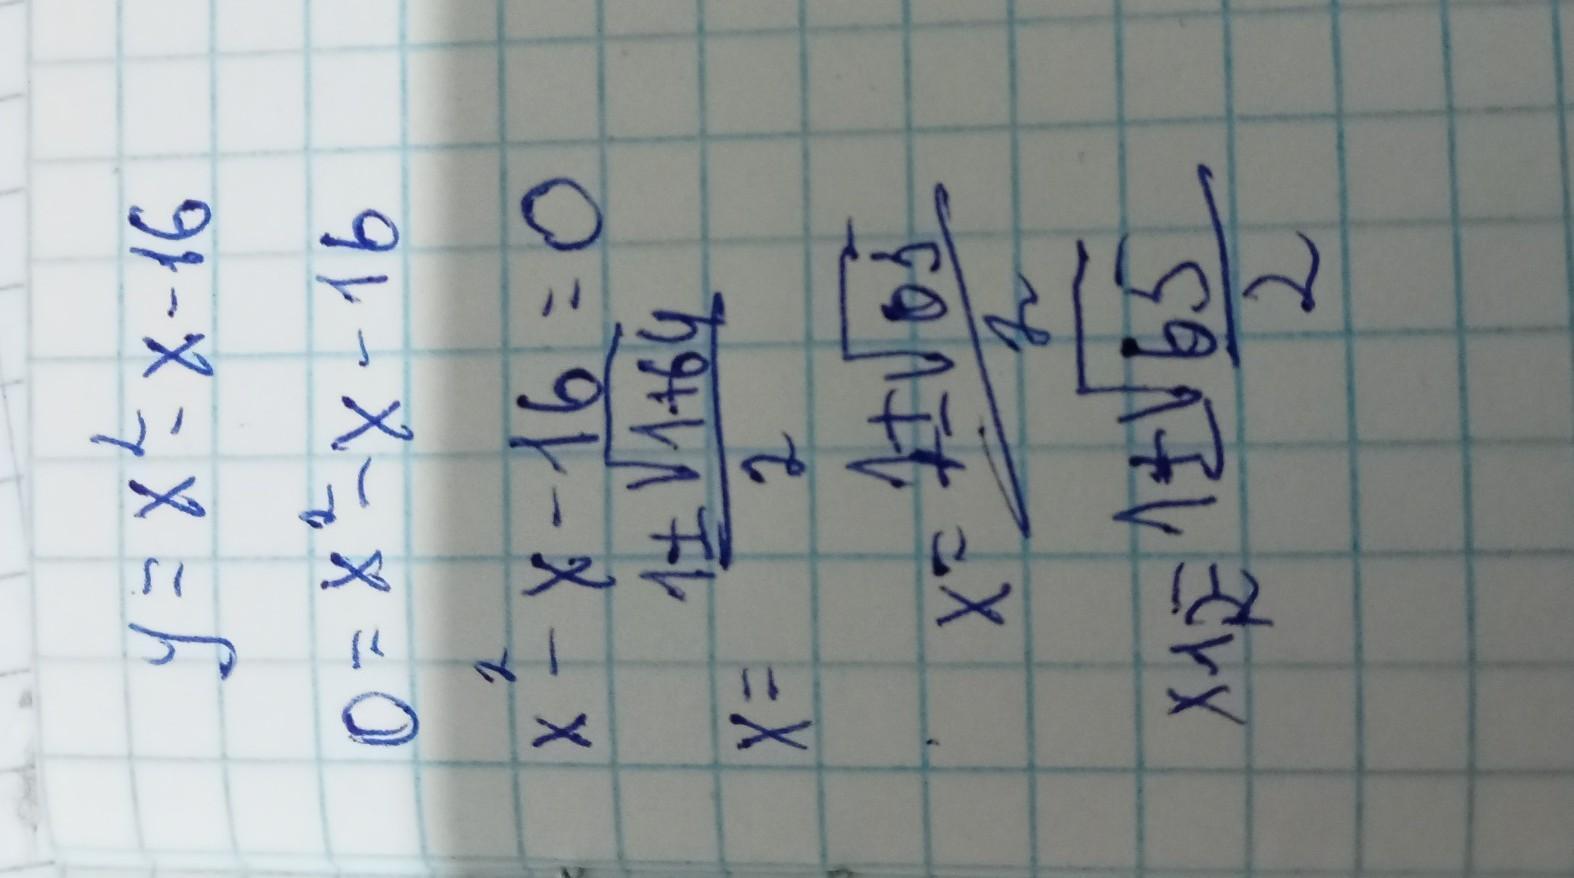 y = x² - x - 16
0 = x² - x - 16
x² - x - 16 = 0
x = (1 ± √(1+64))/2
x = (1 ± √65)/2
x₁,₂ = (1 ± √65)/2